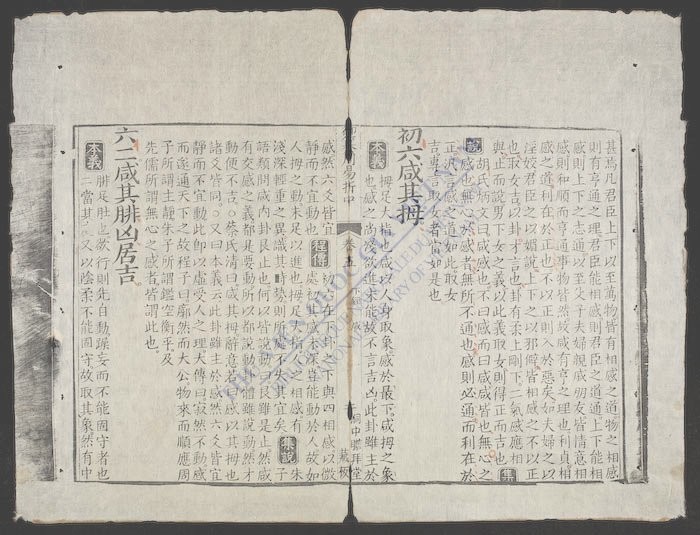 甚焉凡君臣上下以至萬物皆有相感之道物之相感
則有亨通之理君臣能相感則君臣之道通上下能相
感則上下之志通以至父子夫婦親戚朋友皆情意相
感則和順而亨通事物皆然故咸有亨之理也利貞相
感之道利在於正也不以正則入於惡矣如夫婦之以
淫姣君臣之以媚說上下之以邪僻皆相感之不以正
也取女吉以卦才言也卦有柔上剛下二氣感應相
與止而說男下女之義以此義取女則得正而吉也 集
說 胡氏炳文曰咸感也不曰感而曰咸咸皆也無心之
感也無心於感者無所不通也感則必通而利在於
正泛言感之道如此取女
吉專言取女者當如是也
初六咸其拇
本義 拇足大指也咸以人身取象感於最下咸拇之象
也感之尚淺欲進未能故不言吉凶此卦雖主於
易折中
卷五
咸
桐中
拜堂
藏板
感然六爻皆宜
靜而不宜動也 程傳 初六在下卦之下與四相感以微
處初其感未深豈能動於人故如
人拇之動未足以進也拇足大指人之相感有
淺深輕重之異識其時勢則所處不失其宜矣 集說 朱子
語類問咸內卦艮止也何以皆說動曰艮雖是止然咸
有交感之義都是要動所以都說動卦體雖說動然才
動便不吉。蔡氏清曰咸其拇辭意若曰感以其拇也
諸爻皆同。又曰本義云此卦雖主於感然六爻皆宜
靜而不宜動此即以虛受人之理大傳曰寂然不動感
而遂通天下之故程子曰廓然而大公物來而順應周
子所謂主靜朱子所謂鑑空衡平及
先儒所謂無心之感者皆謂此也。
六二咸其腓凶居吉
本義 腓足肚也欲行則先自動躁妄而不能固守者也
二當其處又以陰柔不能固守故取其象然有中